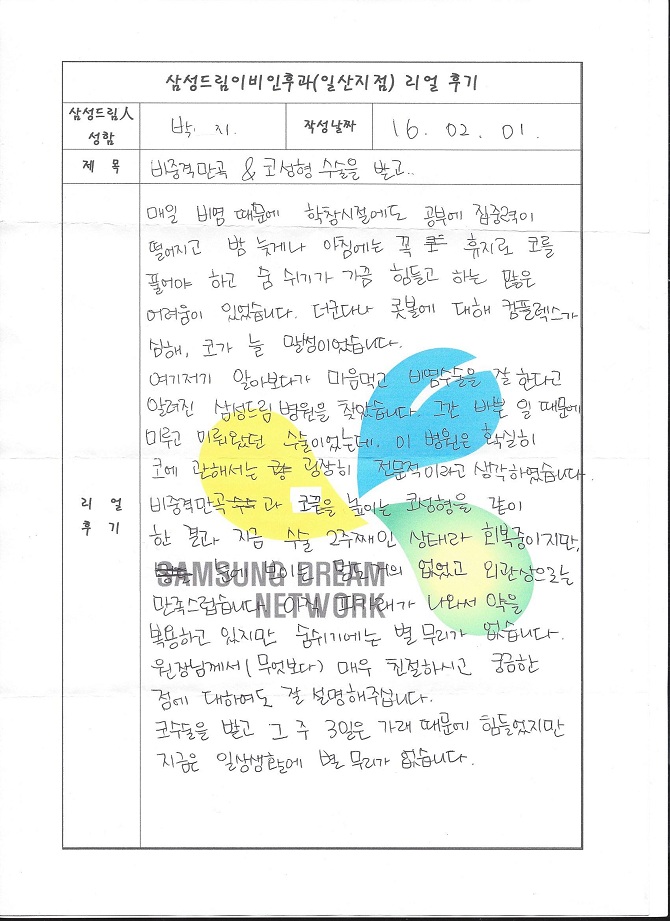 삼성드림이비인후과(일산지점) 리얼 후기
삼성드림人
성함
박. 지.
작성날짜
16. 02. 01.
제 목
비중격만곡 & 코성형 수술을 받고..
매일 비염 때문에 학창시절에도 공부에 집중력이
떨어지고 밤 늦게나 아침에는 꼭 휴지로 코를
풀어야 하고 숨 쉬기가 가끔 힘들고 하는 많은
어려움이 있었습니다. 더군다나 콧볼에 대해 컴플렉스가
심해, 코가 늘 말썽이었습니다.
여기저기 알아보다가 마음먹고 비염수술을 잘 한다고
알려진 삼성드림 병원을 찾았습니다. 그간 바쁜 일 때문에
미루고 미뤄왔던 수술이었는데. 이 병원은 확실히
코에 관해서는 굉장히 전문적이라고 생각하였습니다.
리 얼
후 기
비중격만곡과 코끝을 높이는 코성형을 같이
한 결과 지금 수술 2주째인 상태라 회복중이지만,
눈에 보이는 멍도 거의 없었고 외관상으로는
만족스럽습니다. 아직 피가래가 나와서 약을
복용하고 있지만 숨쉬기에는 별 무리가 없습니다.
원장님께서 (무엇보다) 매우 친절하시고 궁금한
점에 대하여도 잘 설명해주십니다.
코수술을 받고 그 주 3일은 가래 때문에 힘들었지만
지금은 일상생활에 별 무리가 없습니다.
SAMSUNG DREAM
NETWORK